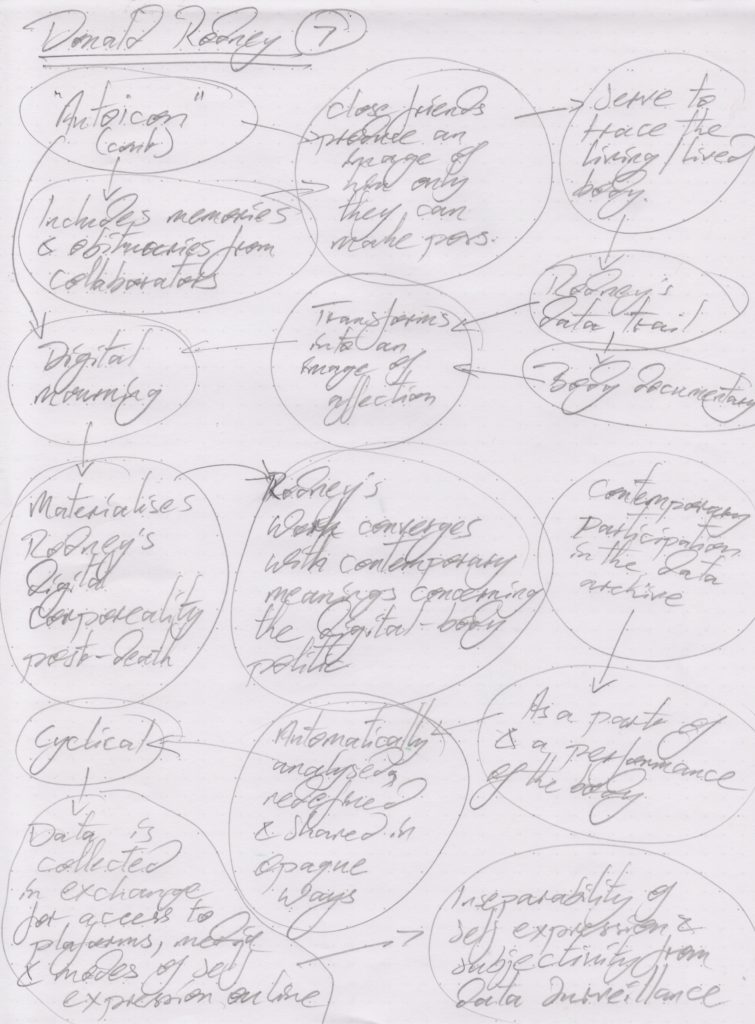 Donald Rodney 7
"Autoicon"
(cont)
Close friends
produce an
image of
him only
they can
make poss.
Serve to
trace the
living/lived
body.
Includes memories
& obituaries from
collaborators
Rodney's
data trail
Digital
mourning
Transforms
into an
image of
affection
Body documentary
Materialises
Rodney's
digital
corporeality
post-death
Rodney's
work converges
with contemporary
meanings concerning
the digital-body
politic
Contemporary
participation
in the data
archive
Cyclical
Automatically
analysed,
redefined
& shared in
opaque
ways
As a part of
& a performance
of the body
Data is
collected
in exchange
for access to
plaforms, media
& modes of self
expression online
Inseparability of
self expression &
subjectivity from
data surveillance